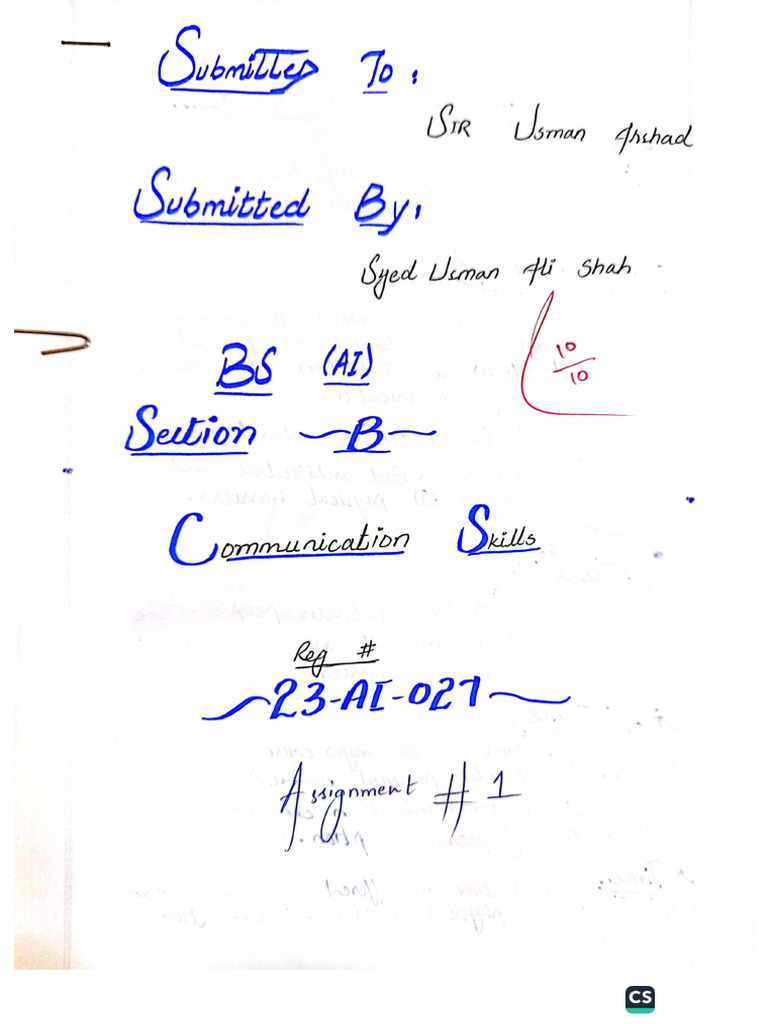 Submitted To:
Sir Usman Arshad
Submitted By:
Syed Usman Ali Shah
10/10
BS (AI)
Section ~B~
Communication Skills
Reg #
~23-AI-027~
Assignment # 1
CS